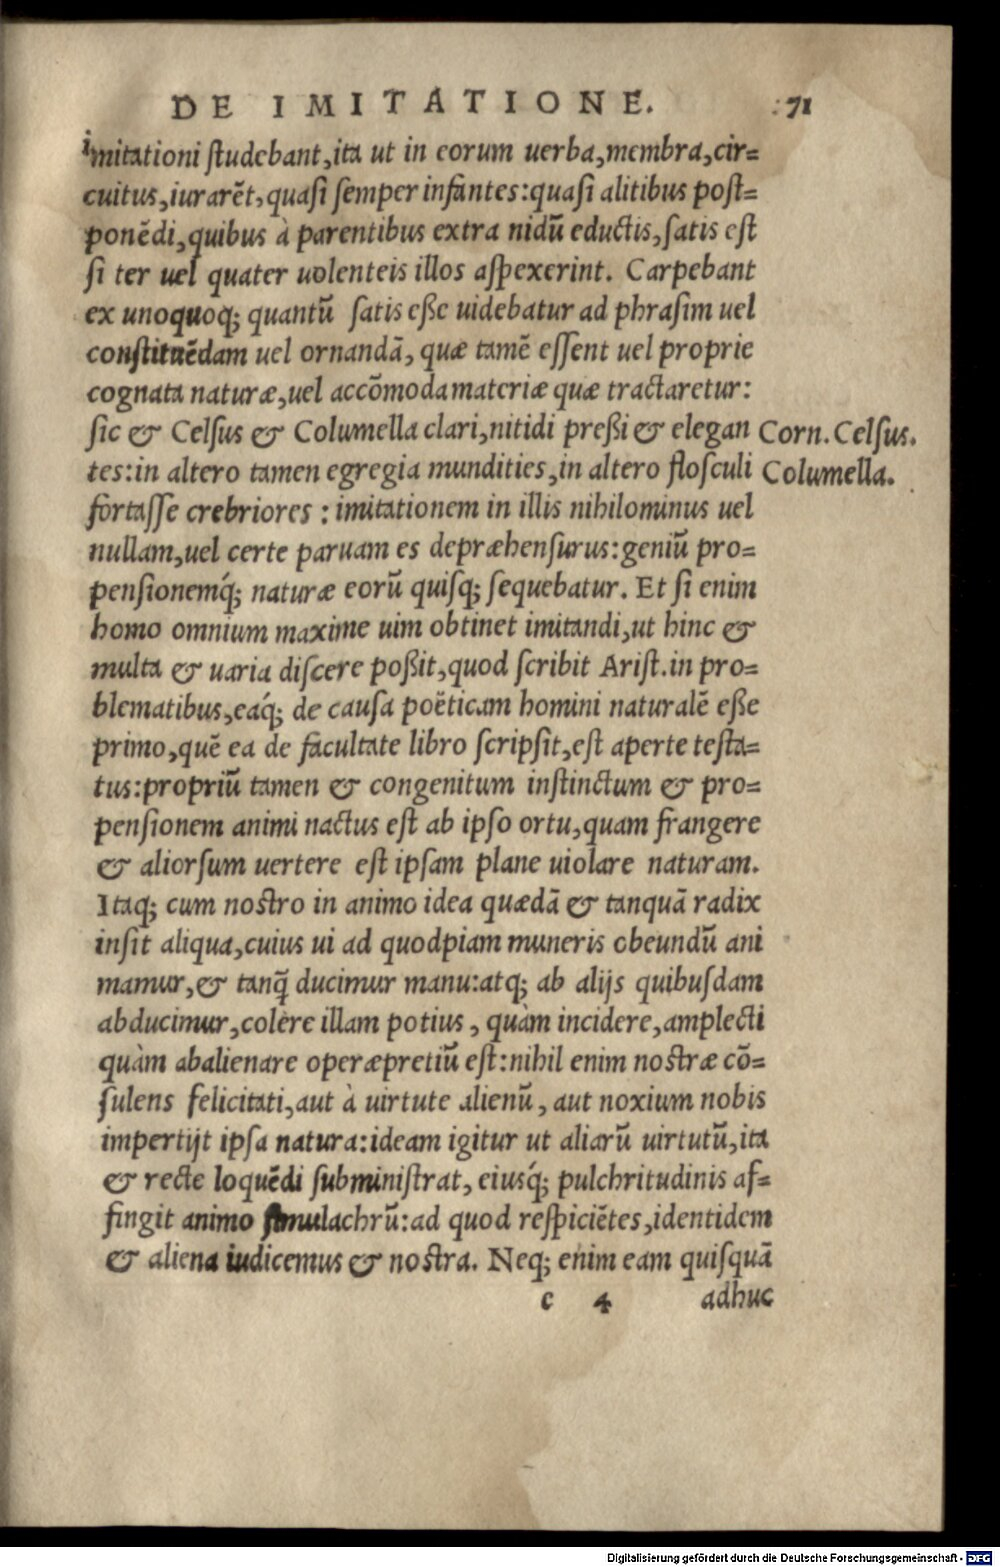 DE IMITATIONE. 71
imitationi ſtudebant,ita ut in eorum uerba,membra,cir=
cuitus,iurarēt,quaſi ſemper infantes:quaſi alitibus poſt=
ponēdi,quibus à parentibus extra nidū eductis,ſatis eſt
ſi ter uel quater uolenteis illos aſpexerint. Carpebant
ex unoquoq; quantū ſatis eße uidebatur ad phraſim uel
conſtituēdam uel ornandā, quæ tamē eſſent uel proprie
cognata naturæ,uel accōmoda materiæ quæ tractaretur:
ſic & Celſus & Columella clari,nitidi preßi & elegan Corn. Celſus.
tes:in altero tamen egregia mundities,in altero floſculi Columella.
fortaſſe crebriores : imitationem in illis nihilominus uel
nullam,uel certe paruam es depræhenſurus:geniū pro=
penſionemq́; naturæ eorū quiſq; ſequebatur. Et ſi enim
homo omnium maxime uim obtinet imitandi,ut hinc &
multa & uaria diſcere poßit,quod ſcribit Ariſt.in pro=
blematibus,eáq; de cauſa poëticam homini naturalē eße
primo,quē ea de facultate libro ſcripſit,eſt aperte teſta=
tus:propriū tamen & congenitum inſtinctum & pro=
penſionem animi nactus eſt ab ipſo ortu,quam frangere
& aliorſum uertere eſt ipſam plane uiolare naturam.
Itaq; cum noſtro in animo idea quædā & tanquā radix
inſit aliqua,cuius ui ad quodpiam muneris obeundū ani
mamur,& tanq̄ ducimur manu:atq; ab alijs quibuſdam
abducimur,colere illam potius, quàm incidere,amplecti
quàm abalienare operæpretiū eſt:nihil enim noſtræ cō=
ſulens felicitati,aut à uirtute alienū, aut noxium nobis
impertijt ipſa natura:ideam igitur ut aliarū uirtutū,ita
& recte loquēdi ſubminiſtrat, eiusq́; pulchritudinis af=
fingit animo ſimulachrū:ad quod reſpiciētes,identidem
& aliena iudicemus & noſtra. Neq; enim eam quiſquā
c 4 adhuc
Digitalisierung gefördert durch die Deutsche Forschungsgemeinschaft - DFG